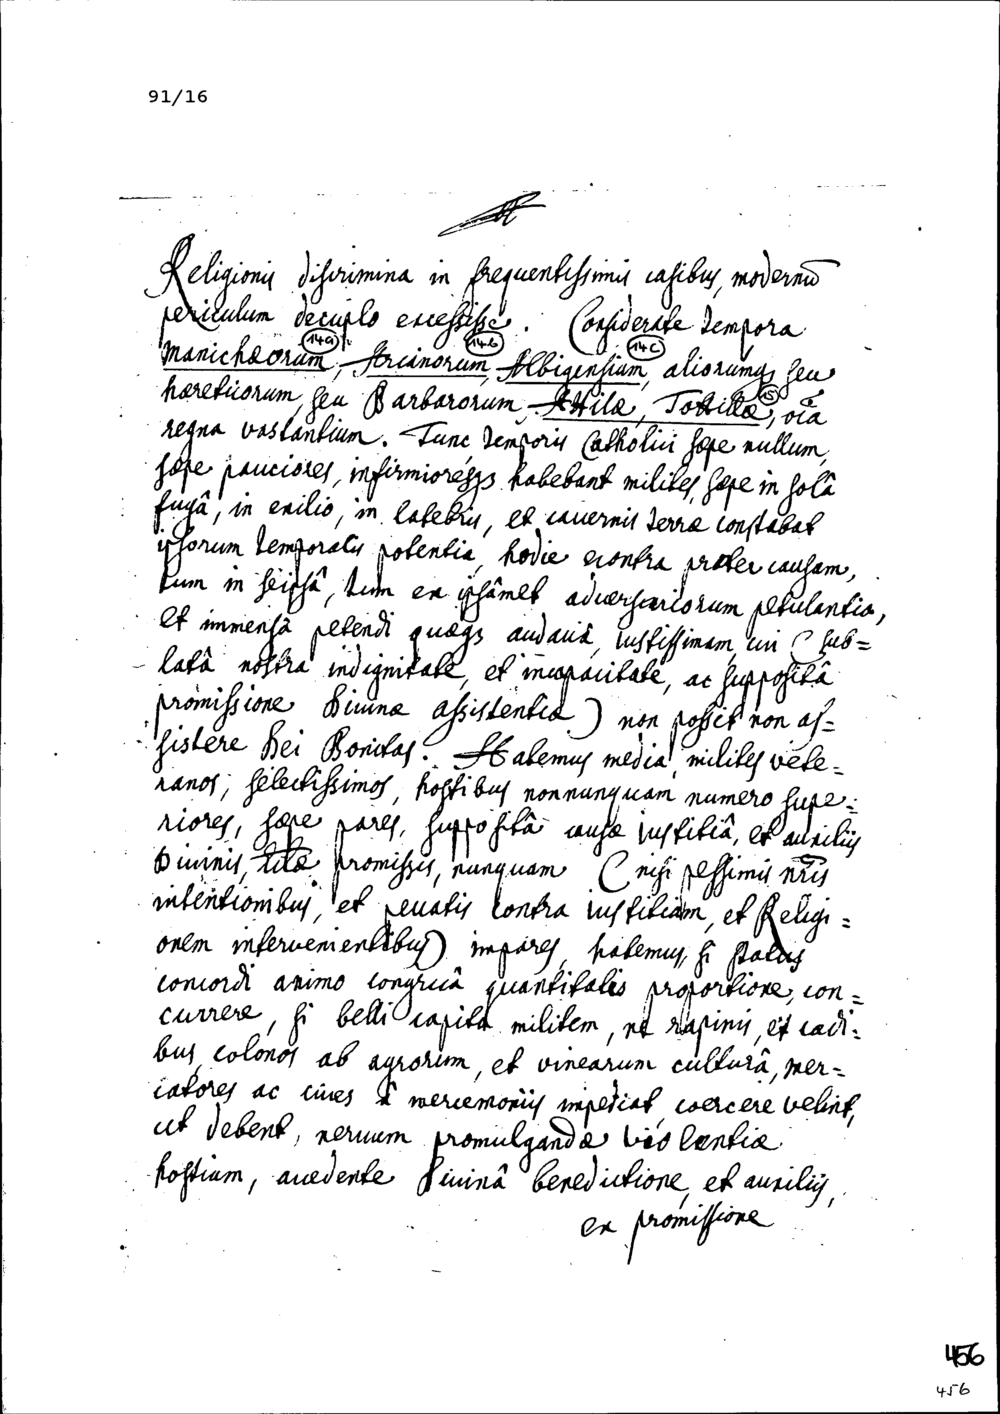 91/16
Religionis discrimina in frequentissimis casibus, modernū
periculum decuplo excessisse. Considerate tempora
14a 14b 14c
Manichæorum, Arianorum, Albigensium, aliorumqs seu
hæreticorum, seu Barbarorum Attilæ, Totilæ, oīa
15
regna vastantium. Tunc temporis Catholici sæpe nullum,
sæpe pauciores, infirmioresqs habebant milites, sæpe in solâ
fugâ, in exilio, in latebris, et cavernis terræ constabat
ipsorum temporalis potentia, hodie econtra præter causam,
tum in seipsâ, tum ex ipsâmet adversariorum petulantia,
et immensâ petendi quæqs audaciâ, iustissimam, cui (sub=
latâ nostra indignitate, et incapacitate, ac suppositâ
promissione Divinæ assistentiæ) non possit non as=
sistere Dei Bonitas. Habemus media, milites vete=
ranos, selectissimos, hostibus nonnunquam numero supe=
riores, sæpe pares, suppositâ causæ iustitiâ, et auxiliis
Divinis, promissis, nunquam (nisi pessimis nr̄is
intentionibus, et peccatis contra iustitiam, et Religi=
onem intervenientibus) impares, habemus, si status
concordi animo congruâ quantitatis proportione, con=
currere, si belli capita militem, ne rapinis, et cædi=
bus colonos ab agrorum, et vinearum culturâ, mer=
catores ac cives à mercemoniis impediat, coercere velint,
ut debent, nervum promulgandæ violentiæ
hostium, accedente Divinâ benedictione, et auxiliis,
ex promissione
456
456